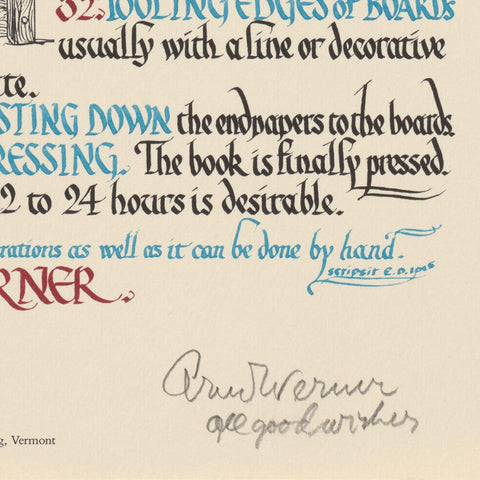 32. TOOLING EDGES of BOARDS
usually with a line or decorative
te.
STING DOWN the endpapers to the boards
RESSING. The book is finally pressed.
2 to 24 hours is desirable.
rations as well as it can be done by hand.
scripsit E.D.
RNER.
Arno Werner
all good wishes
g, Vermont